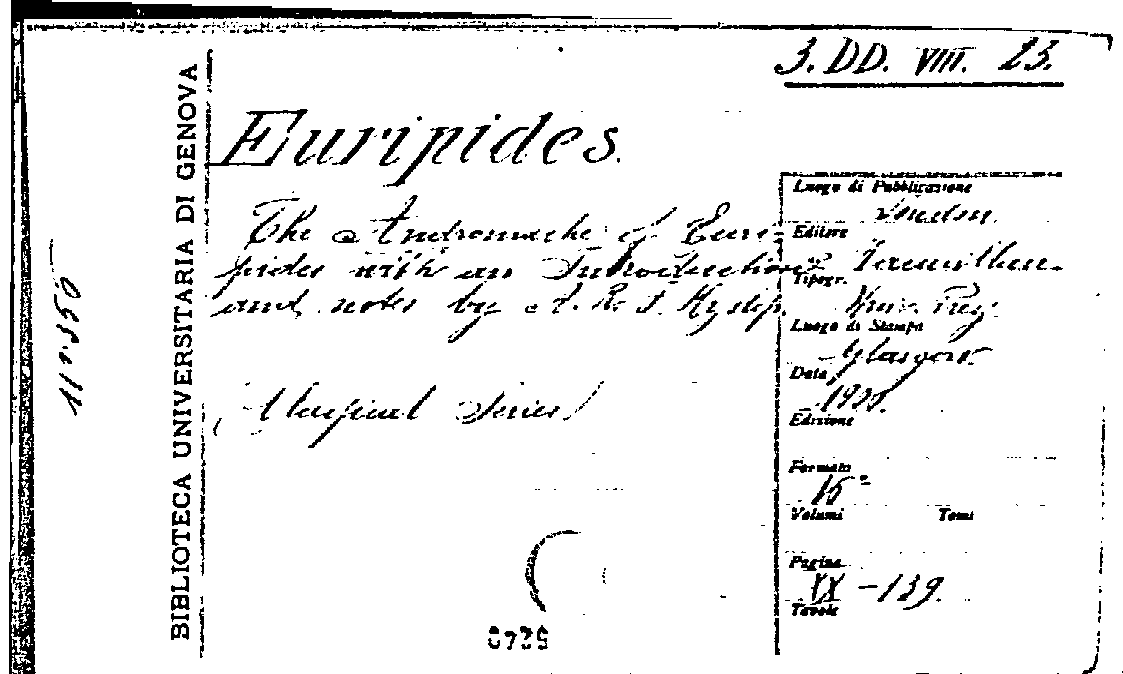 3. DD. VIII. 23.
BIBLIOTECA UNIVERSITARIA DI GENOVA
Euripides.
The Andromache of Euri-
pides with an Introduction
and notes by A. R. F. Hyslop.
(Classical Series)
Luogo di Pubblicazione
London
Editore
Macmillan
Tipogr.
Univ. Press
Luogo di Stampa
Glasgow
Data
Edizione
Formato
16°
Volumi Tomi
Pagine
XX - 139.
Tavole